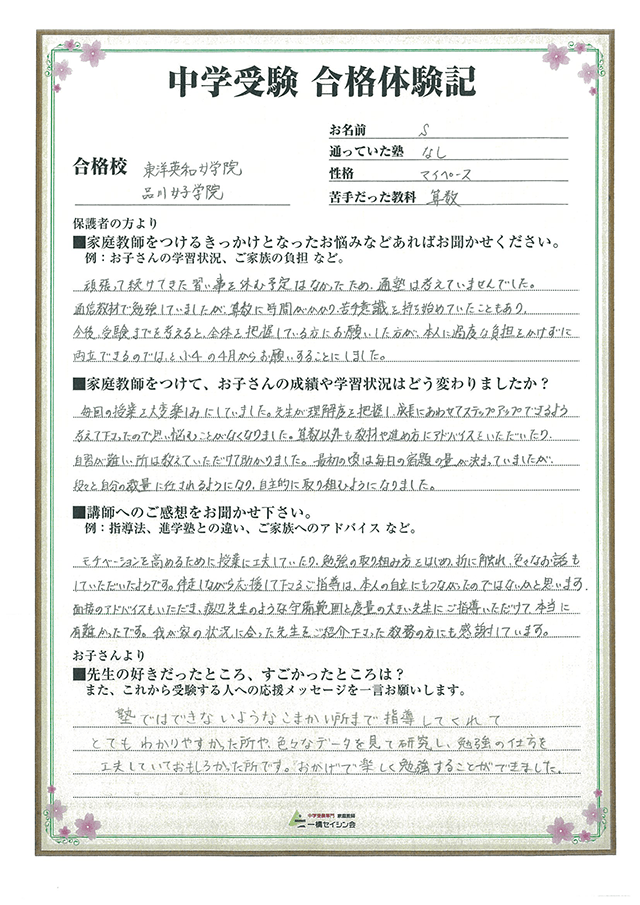 中学受験 合格体験記
お名前 S
通っていた塾 なし
性格 マイペース
苦手だった教科 算数
合格校 東洋英和女学院
品川女子学院
保護者の方より
■家庭教師をつけるきっかけとなったお悩みなどあればお聞かせください。
例：お子さんの学習状況、ご家族の負担 など。
頑張って続けてきた習い事を休む予定はなかったため、通塾は考えていませんでした。
通信教材で勉強していましたが、算数に時間がかかり、苦手意識を持ち始めていたこともあり、
今後、受験までを考えると、全体を把握している方にお願いした方が、本人に過度な負担をかけずに
両立できるのでは、と小4の4月からお願いすることにしました。
■家庭教師をつけて、お子さんの成績や学習状況はどう変わりましたか？
毎回の授業を大変楽しみにしていました。先生が理解度を把握し、成長にあわせてステップアップできるよう
考えて下さったので思い悩むことがなくなりました。算数以外も教材や進め方にアドバイスをいただいたり、
自習が難しい所は教えていただけて助かりました。最初の頃は毎日の宿題の量が決まっていましたが、
段々と自分の裁量に任されるようになり、自主的に取り組むようになりました。
■講師へのご感想をお聞かせ下さい。
例：指導法、進学塾との違い、ご家族へのアドバイス など。
モチベーションを高めるために授業に工夫していたり、勉強の取り組み方をはじめ、折に触れ、色々なお話も
していただいたようです。伴走しながら応援して下さるご指導は、本人の自立にもつながったのではないかと思います。
面接のアドバイスもいただき、渡辺先生のような守備範囲と度量の大きい先生にご指導いただけて本当に
有難かったです。我が家の状況に合った先生をご紹介下さった教務の方にも感謝しています。
お子さんより
■先生の好きだったところ、すごかったところは？
また、これから受験する人への応援メッセージを一言お願いします。
塾ではできないようなこまかい所まで指導してくれて
とてもわかりやすかった所や、色々なデータを見て研究し、勉強の仕方を
工夫していておもしろかった所です。おかげで楽しく勉強することができました。
中学受験専門 家庭教師
一橋セイシン会